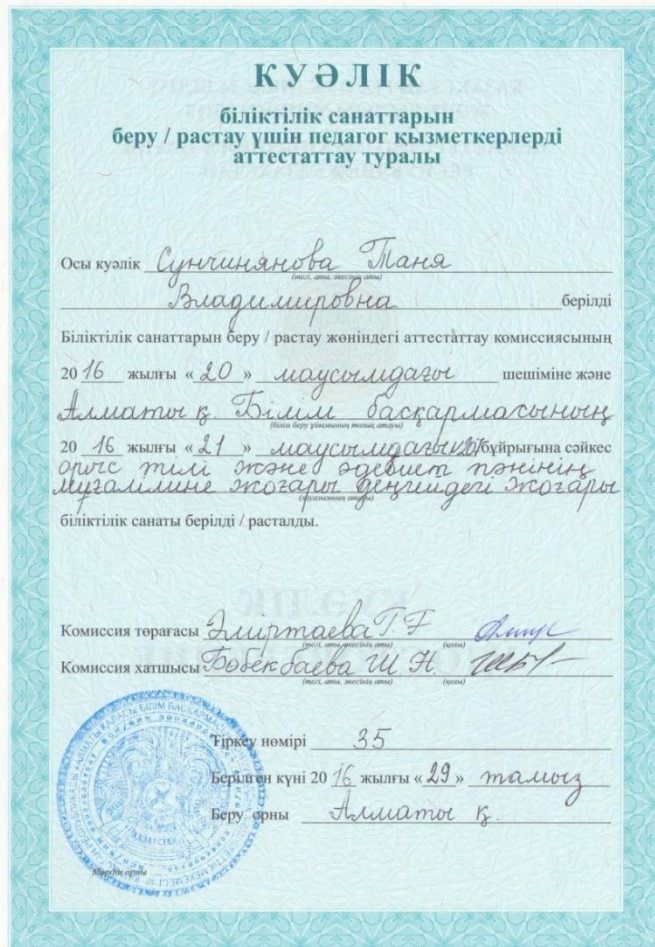 КУӘЛІК
біліктілік санаттарын
беру / растау үшін педагог қызметкерлерді
аттестаттау туралы
Осы куәлік Сунчинянова Таня
(тегі, аты, әкесінің аты)
Владимировна берілді
Біліктілік санаттарын беру / растау жөніндегі аттестаттау комиссиясының
20 16 жылғы « 20 » маусымдағы шешіміне және
Алматы қ. Білім басқармасының
(білім беру ұйымының толық атауы)
20 16 жылғы « 21 » маусымдағы бұйрығына сәйкес
орыс тілі және әдебиет пәнінің
мұғаліміне жоғары деңгейдегі жоғары
(лауазымның атауы)
біліктілік санаты берілді / расталды.
Комиссия төрағасы Г. Г
(тегі, аты, әкесінің аты) (қолы)
Комиссия хатшысы Бобекбаева Ш. Н.
(тегі, аты, әкесінің аты) (қолы)
Тіркеу нөмірі 35
Берілген күні 20 16 жылғы « 29 » тамыз
Беру орны Алматы қ.
Мөрдің орны